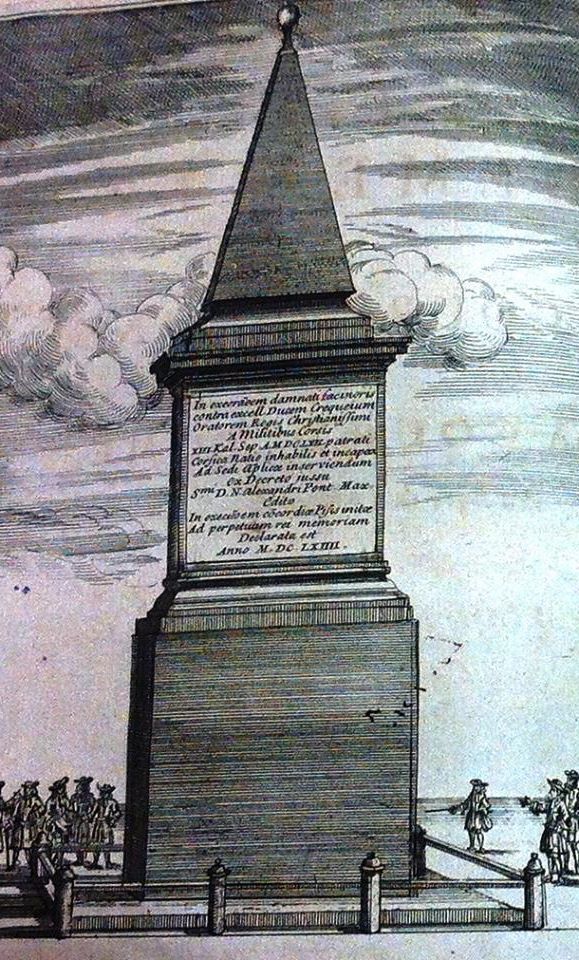 In execraõem damnati facinoris
contra excell. Ducem Crequeium
Oratorem Regis Christianissimi
A Militibus Corsis
XIII Kal. Sep. A.M.DCLXII. patrati
Corsica Natio inhabilis et incapax
Ad Sedi Aplicæ inserviendum
ex Decreto jussu
Smi D. N. Alexandri Pont. Max
Edito
In execuõem cõcordiæ Pisis initæ
Ad perpetuam rei memoriam
Declarata est
Anno M. DC. LXIIII.